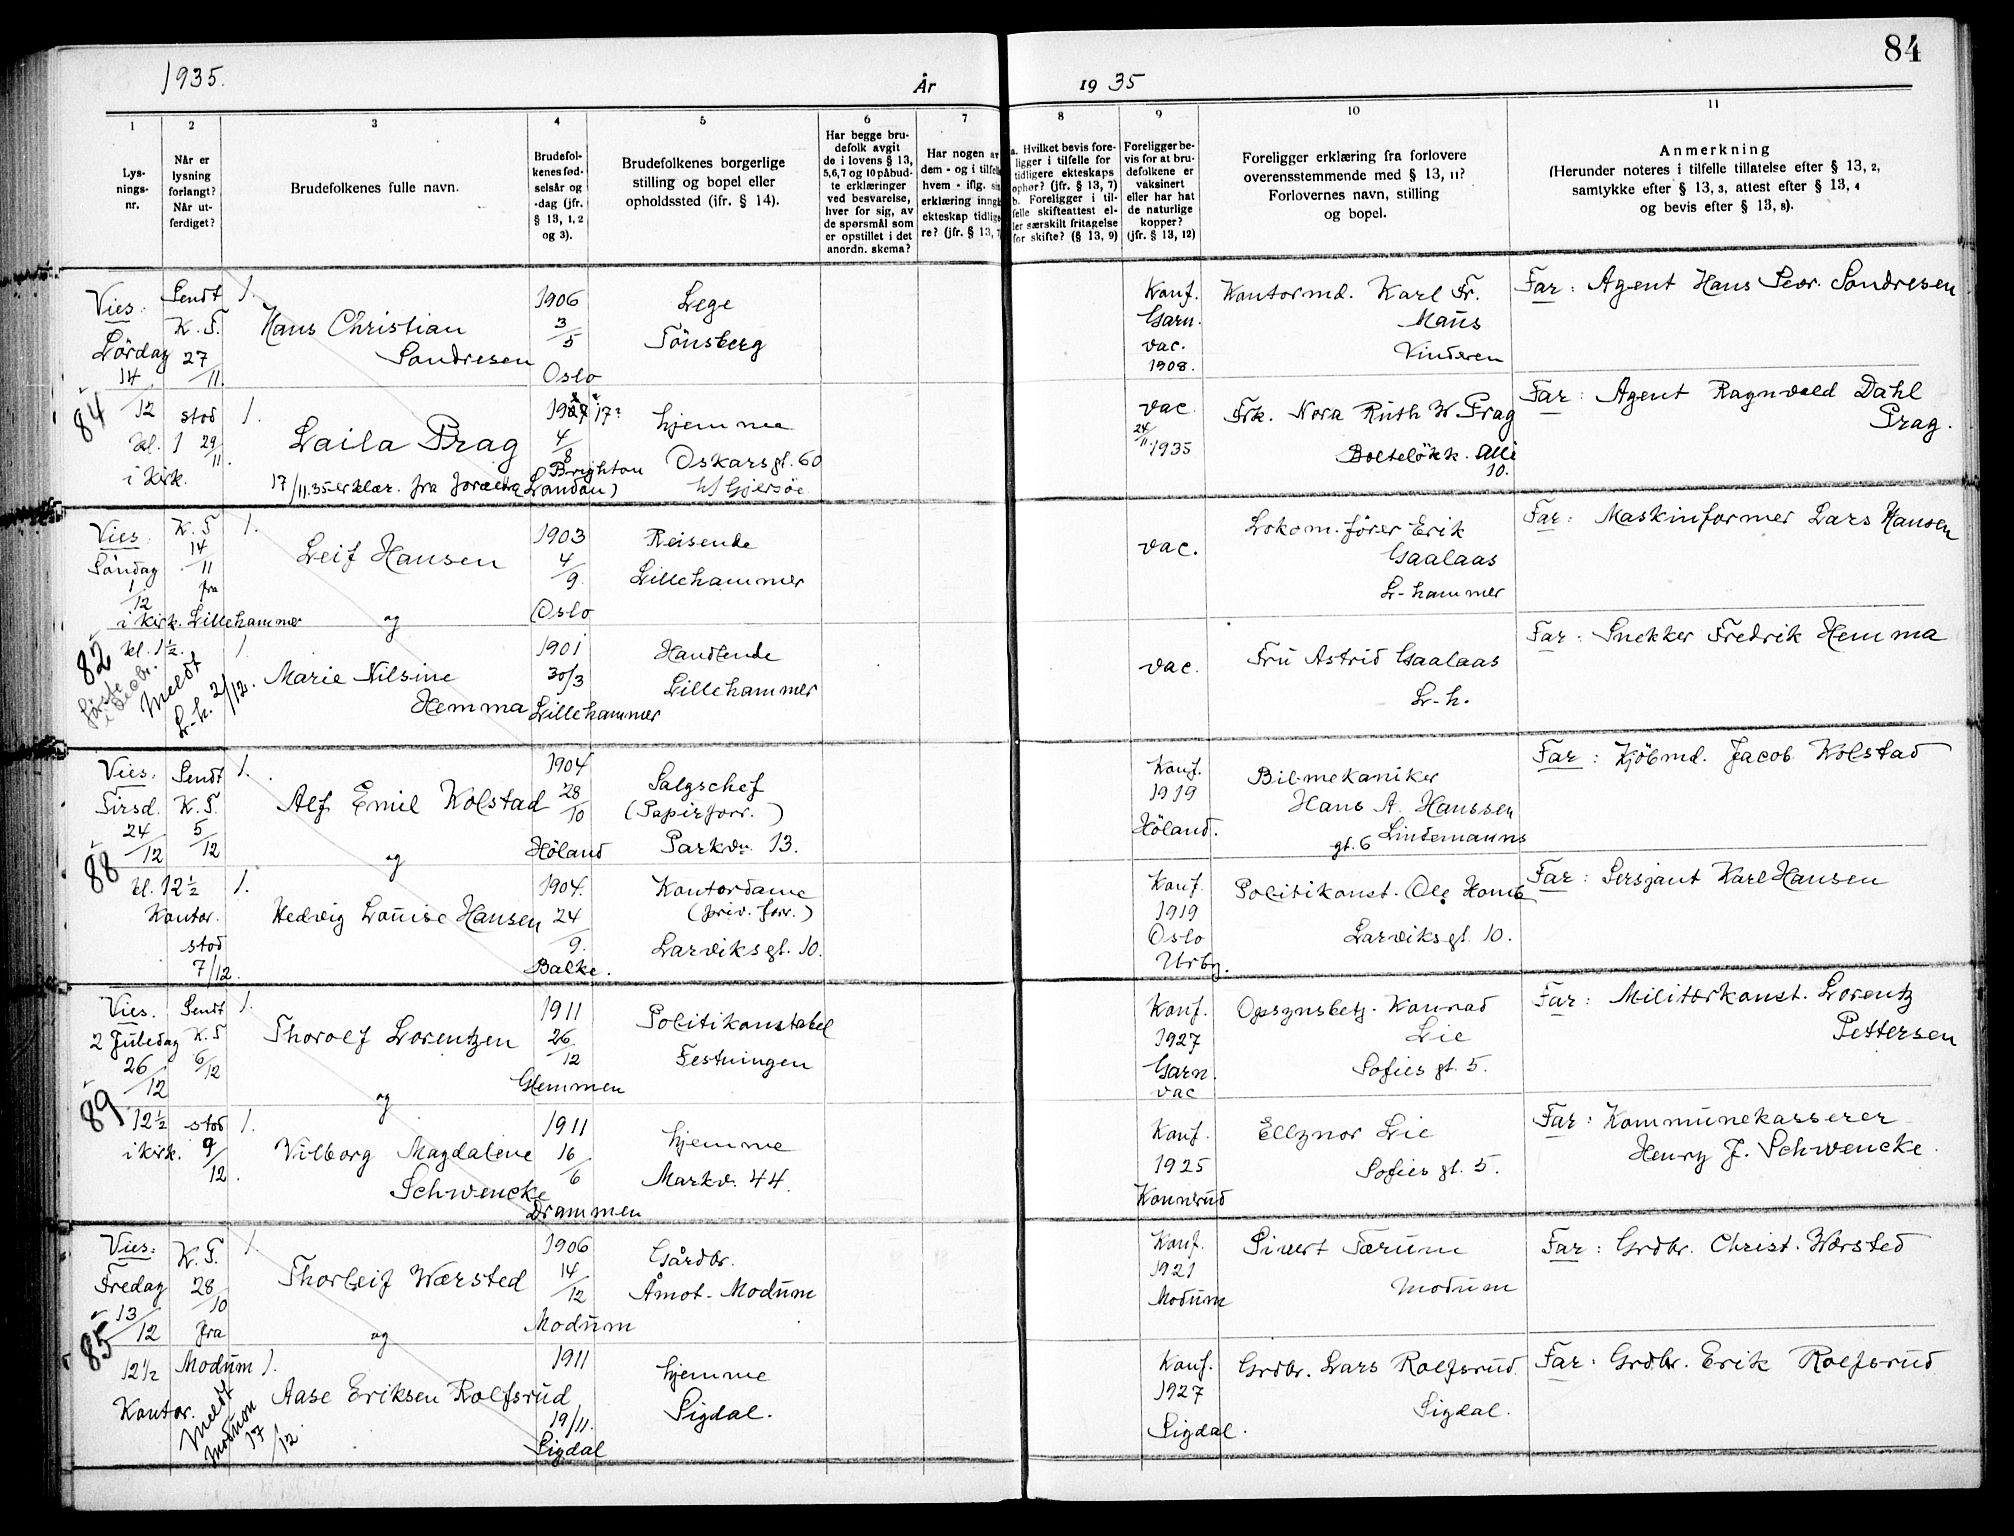 84
1935.
År
19 35
1
2
3
4
5
6
7
8
9
10
11
Lysningsnr.
Når er lysning forlangt? Når utferdiget?
Brudefolkenes fulle navn.
Brudefolkenes fødselsår og -dag (jfr. § 13, 1, 2 og 3).
Brudefolkenes borgerlige stilling og bopel eller opholdssted (jfr. § 14).
Har begge brudefolk avgit de i lovens § 13, 5, 6, 7 og 10 påbudte erklæringer ved besvarelse, hver for sig, av de spørsmål som er opstillet i det anordn. skema?
Har nogen av dem - og i tilfelle hvem - iflg. sin erklæring inngått ekteskap tidligere? (jfr. § 13, 7
a. Hvilket bevis foreligger i tilfelle for tidligere ekteskaps ophør? (jfr. § 13, 7) b. Foreligger i tilfelle skifteattest eller særskilt fritagelse for skifte? (§ 13, 9)
Foreligger bevis for at brudefolkene er vaksinert eller har hat de naturlige kopper? (jfr. § 13, 12)
Foreligger erklæring fra forlovere overensstemmende med § 13, 11? Forlovernes navn, stilling og bopel.
Anmerkning
(Herunder noteres i tilfelle tillatelse efter § 13, 2, samtykke efter § 13, 3, attest efter § 13, 4 og bevis efter § 13, 8).
Vies.
Lördag
14/12
kl. 1
i kirk.
84
Sendt
K. T.
27/11.
stod
29/11.
1.
Hans Christian
Sandresen
1906
3/5
Oslo
Lege
Tönsberg
Konf.
Garn.
vac.
1908.
Kontormd. Karl Fr.
Maus
Vinderen
Far: Agent Hans Peder Sandresen
1.
Laila Prag
17/11.35 erklær. fra foreldre
17?
4/8
Brighton
(London)
hjemme
Oskarsgt. 60
vac
24/11 1935
Frk. Nora Ruth W. Prag
Bolteløkk. Allé
10.
Far: Agent Ragnvald Dahl
Prag.
Vies.
Söndag
1/12
i kirk.
kl. 1½.
82
første
i Decbr.
K. T
14/11
fra
Lillehammer
Meldt
L-h. 2/12.
1.
Leif Hansen
og
1903
4/9
Oslo
Reisende
Lillehammer
vac.
Lokom.fører Erik
Gaalaas
L-hammer
Far: Maskinformer Lars Hansen
1.
Marie Nilsine
Hemma
1901
30/3
Lillehammer
Handlende
Lillehammer
vac.
Fru Astrid Gaalaas
L-h.
Far: Snekker Fredrik Hemma
Vies.
Tirsd.
24/12
kl. 12½
Kontor.
88
Sendt
K. T.
5/12
stod
7/12.
1.
Alf Emil Kolstad
og
1904
28/10
Höland
Salgschef
(Papirforr.)
Parkv. 13.
Konf.
1919
Höland.
Bilmekaniker
Hans A. Hanssen
Lindemanns
gt. 6
Far: Kjöbmd. Jacob Kolstad
1.
Hedvig Louise Hansen
1904.
24/9.
Balke.
Kontordame
(priv. forr.)
Larviksgt. 10.
Konf.
1919
Oslo
Urbg.
Politikonst. Ole Homb
Larviksgt. 10.
Far: Sersjant Karl Hansen
Vies.
2 Juledag
26/12
12½
i kirk.
89
Sendt
K. T
6/12
stod
9/12.
1.
Thorolf Lorentzen
og
1911
26/12
Glemmen
Politikonstabel
Festningen
Konf.
1927
Garn.
vac
Opsynsbetj. Konrad
Lie
Sofies gt. 5.
Far: Militærkonst. Lorentz
Pettersen
1.
Vilborg Magdalene
Schwencke
1911
16/6
Drammen
hjemme
Markv. 44.
Konf.
1925
Konnerud
Ellynor Lie
Sofies gt. 5.
Far: Kommunekasserer
Henry J. Schwencke.
Vies.
Fredag
13/12
12½
Kontor.
85
K. T.
28/10
fra
Modum
Meldt
Modum
17/12
1.
Thorleif Wærsted
og
1906
14/12
Modum
Gårdbr.
Åmot - Modum
Konf.
1921
Modum
Sivert Færum
Modum
Far: Grdbr. Christ. Wærsted
1.
Aase Eriksen Rolfsrud
1911
19/11.
Sigdal
hjemme
Sigdal.
Konf.
1927
Sigdal.
Grdbr. Lars Rolfsrud
Sigdal.
Far: Grdbr. Erik Rolfsrud